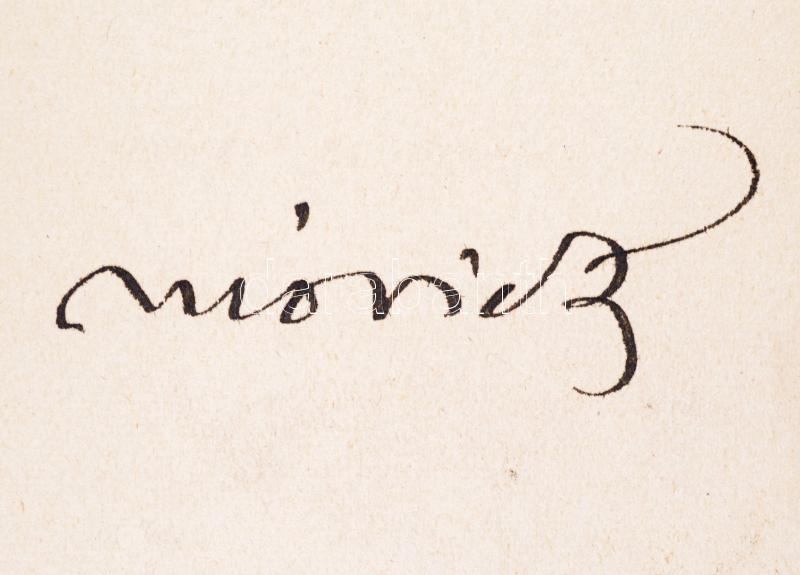 móricz
darabanth